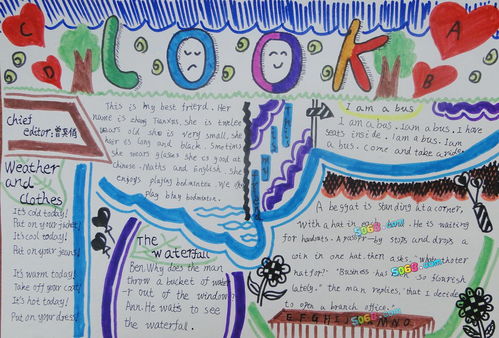 C
D
LOOK
A
B
Chief
editor:
This is my best friend. Her
name is zhang TianXue, she is twelve
years old she is very small, she
hair is long and black. Smetimes
she wears glasses she is good at
Chinese. Maths and English. she
enjoys playing badminton. We often
play badminton.
I am a bus
I am a bus. I am a bus. I have
seats inside. I am a bus. I am
a bus. Come and take a ride.
Weather
and
Clothes
It's cold today!
Put on your jacket!
It's cool today!
Put on your jeans!
It's warm today!
Take off your coat!
It's hot today!
Put on your dress!
The
waterfall
Ben. Why does the man
throw a bucket of water
r out of the window
Ann. He wats to see
the waterfall.
A beggat is standing at a corner,
with a hat in each hand. He is waiting
for handouts. A passer-by stops and drops a
coin in one hat, then asks,
hat for?" "Business has
so flourish
lately." the man replies, "that I decide
to open a branch office."
E F G H I J K L M N O
5068.com